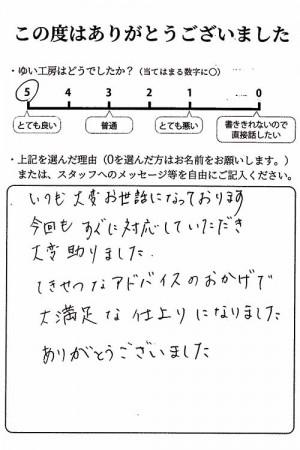 この度はありがとうございました
・ゆい工房はどうでしたか？（当てはまる数字に○）
5 4 3 2 1 0
とても良い 普通 とても悪い 書ききれないので直接話したい
・上記を選んだ理由（0を選んだ方はお名前をお願いします。）
または、スタッフへのメッセージ等を自由にご記入ください。
いつも大変お世話になっております
今回もすぐに対応していただき
大変助りました.
てきせつなアドバイスのおかげで
大満足な仕上りになりました
ありがとうございました